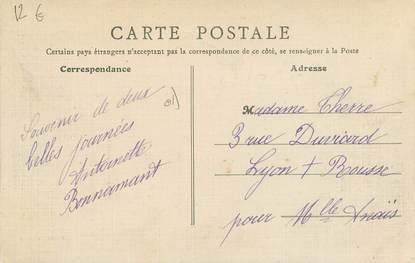 12 €
CARTE POSTALE
Certains pays étrangers n'acceptant pas la correspondance de ce côté, se renseigner à la Poste
Correspondance
Adresse
Souvenir de deux
belles journées
Antoinette
Bonnamant
Madame Cherre
3 rue Duvicard
Lyon + Rousse
pour Mlle Anaïs